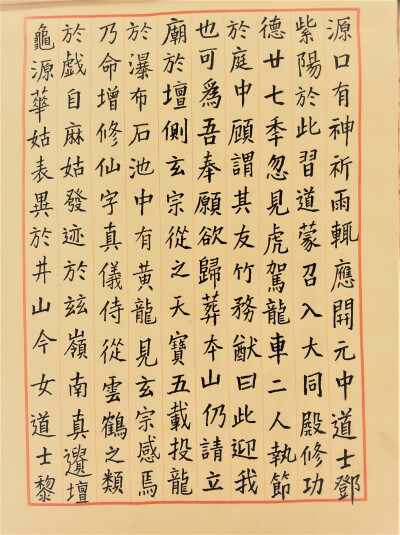 源口有神祈雨輒應開元中道士鄧
紫陽於此習道蒙召入大同殿修功
德廿七秊忽見虎駕龍車二人執節
於庭中顧謂其友竹務猷曰此迎我
也可為吾奉願欲歸葬本山仍請立
廟於壇側玄宗從之天寶五載投龍
於瀑布石池中有黃龍見玄宗感焉
乃命增修仙宇真儀侍從雲鶴之類
於戲自麻姑發迹於茲嶺南真邉壇
龜源華姑表異於井山今女道士黎